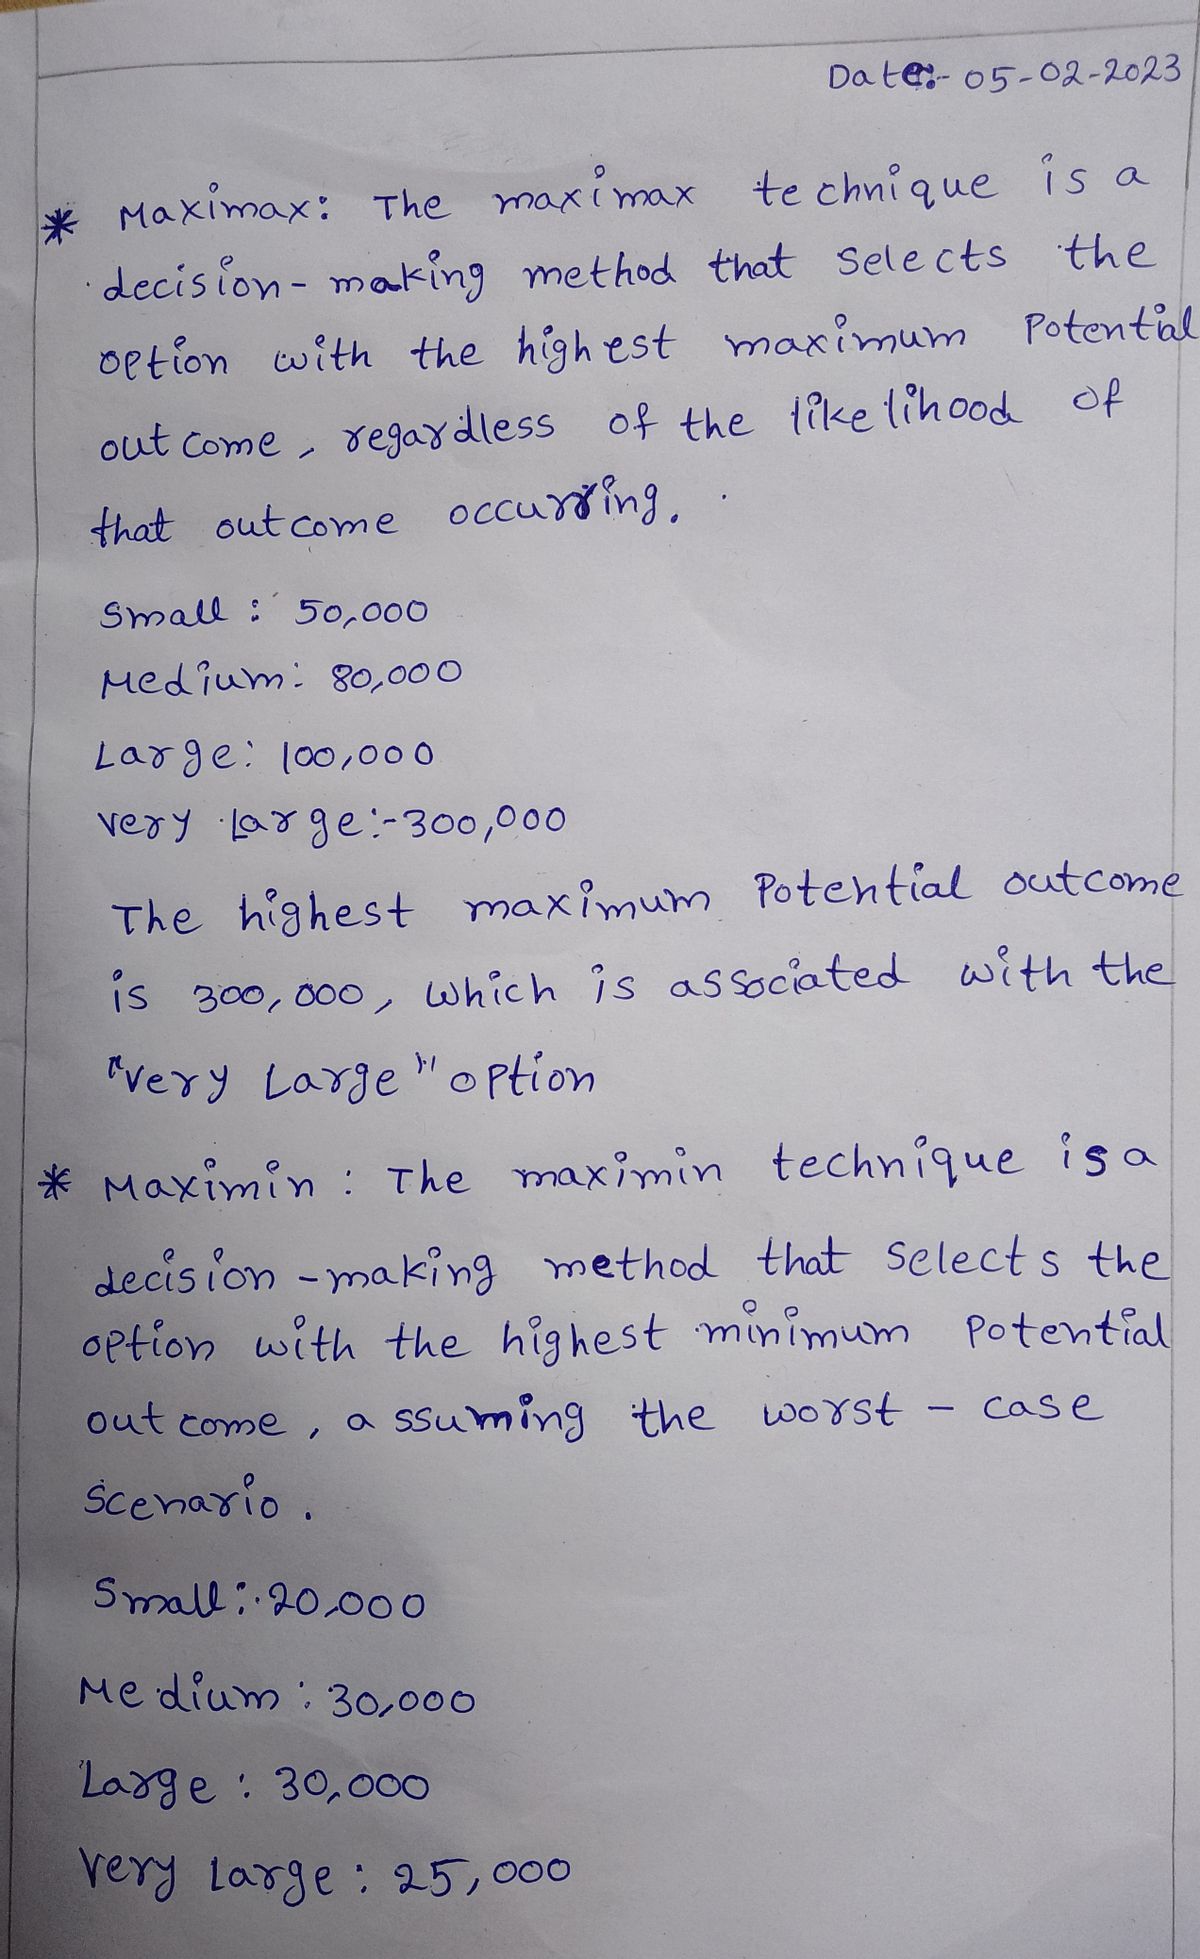 Date:- 05-02-2023
* Maximax: The maximax technique is a
decision-making method that selects the
option with the highest maximum Potential
outcome, regardless of the likelihood of
that outcome occurring.
Small : 50,000
Medium: 80,000
Large: 100,000
very large:-300,000
The highest maximum Potential outcome
is 300,000, which is associated with the
"very Large" option
* Maximin : The maximin technique is a
decision-making method that selects the
option with the highest minimum Potential
outcome, assuming the worst-case
Scenario.
Small: 20,000
Medium : 30,000
Large : 30,000
Very Large : 25,000